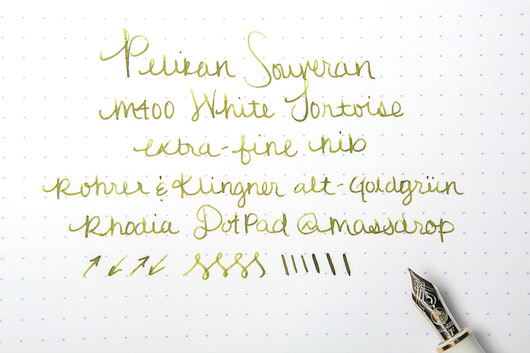 Pelikan Souveran
M400 White Tortoise
extra-fine nib
Rohrer & Klingner alt-Goldgrün
Rhodia DotPad @massdrop